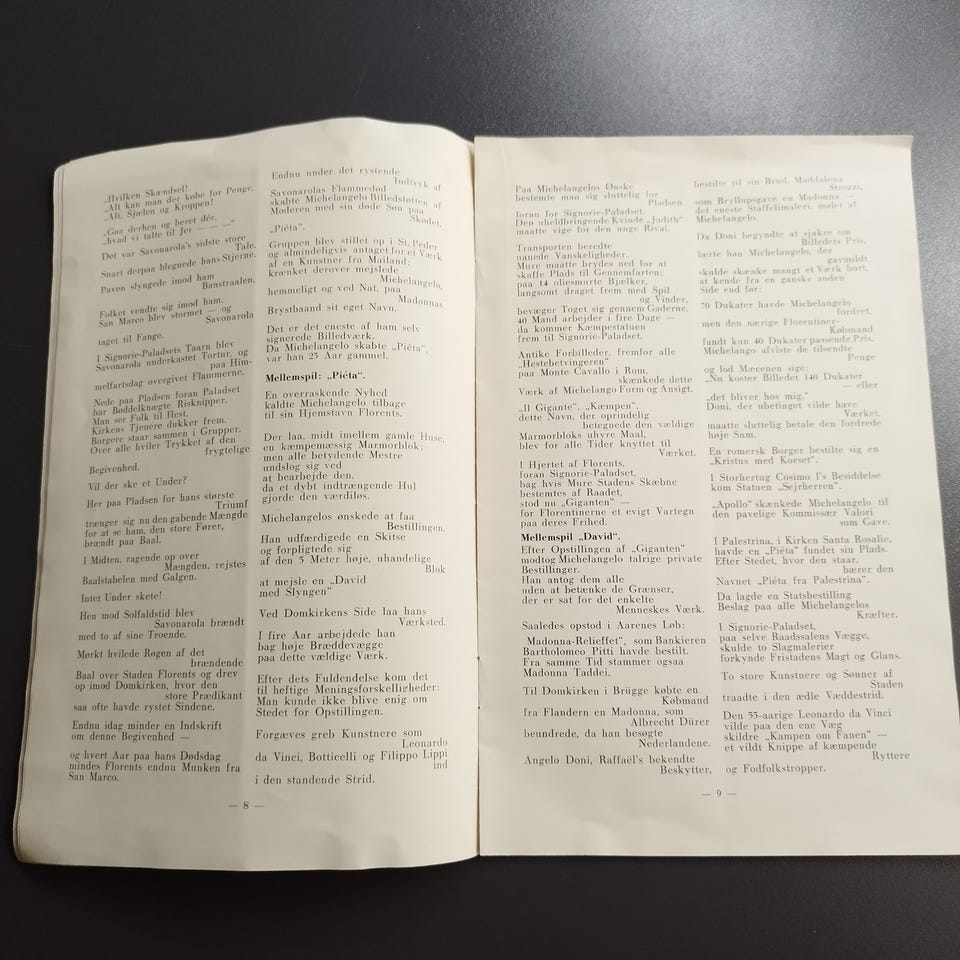 „Hvilken Skændsel!
„Alt kan man der købe for Penge,
„Alt, Sjælen og Kroppen!
„Gaa derhen og beret dér,
„hvad vi talte til Jer — — —“
Det var Savonarola's sidste store
Tale.
Snart derpaa blegnede hans Stjerne.
Paven slyngede imod ham
Banstraalen,
Folket vendte sig imod ham.
San Marco blev stormet — og
Savonarola
taget til Fange.
I Signorie-Paladsets Taarn blev
Savonarola underkastet Tortur, og
paa Him-
melfartsdag overgivet Flammerne.
Nede paa Pladsen foran Paladset
har Bøddelknægte Risknipper.
Man ser Folk til Hest.
Kirkens Tjenere dukker frem,
Borgere staar sammen i Grupper.
Over alle hviler Trykket af den
frygtelige
Begivenhed.
Vil der ske et Under?
Her paa Pladsen for hans største
Triumf
trænger sig nu den gabende Mængde
for at se ham, den store Fører,
brændt paa Baal.
I Midten, ragende op over
Mængden, rejstes
Baalstabelen med Galgen.
Intet Under skete!
Hen mod Solfaldstid blev
Savonarola brændt
med to af sine Troende.
Mørkt hvilede Røgen af det
brændende
Baal over Staden Florents og drev
op imod Domkirken, hvor den
store Prædikant
saa ofte havde rystet Sindene.
Endnu idag minder en Indskrift
om denne Begivenhed —
og hvert Aar paa hans Dødsdag
mindes Florents endnu Munken fra
San Marco.
Endnu under det rystende
Indtryk af
Savonarolas Flammedød
skabte Michelangelo Billedstøtten af
Moderen med sin døde Søn paa
Skødet,
„Piéta“.
Gruppen blev stillet op i St. Peder
og almindeligvis antaget for et Værk
af en Kunstner fra Mailand;
krænket derover mejslede
Michelangelo,
hemmeligt og ved Nat, paa
Madonnas
Brystbaand sit eget Navn.
Det er det eneste af ham selv
signerede Billedværk.
Da Michelangelo skabte „Piéta“,
var han 25 Aar gammel.
Mellemspil: „Piéta“.
En overraskende Nyhed
kaldte Michelangelo tilbage
til sin Hjemstavn Florents.
Der laa, midt imellem gamle Huse,
en kæmpemæssig Marmorblok;
men alle betydende Mestre
undslog sig ved
at bearbejde den,
da et dybt indtrængende Hul
gjorde den værdiløs.
Michelangelos ønskede at faa
Bestillingen.
Han udfærdigede en Skitse
og forpligtede sig
af den 5 Meter høje, uhandelige
Blok
at mejsle en „David
med Slyngen“
Ved Domkirkens Side laa hans
Værksted.
I fire Aar arbejdede han
bag høje Bræddevægge
paa dette vældige Værk.
Efter dets Fuldendelse kom det
til heftige Meningsforskelligheder:
Man kunde ikke blive enig om
Stedet for Opstillingen.
Forgæves greb Kunstnere som
Leonardo
da Vinci, Botticelli og Filippo Lippi
ind
i den standende Strid.
— 8 —
Paa Michelangelos Ønske
bestemte man sig sluttelig for
Pladsen
foran for Signorie-Paladset.
Den uheldbringende Kvinde „Judith“
maatte vige for den unge Rival.
Transporten beredte
uanede Vanskeligheder.
Mure maatte brydes ned for at
skaffe Plads til Gennemfarten;
paa 14 oliesmurte Bjælker,
langsomt draget frem med Spil
og Vinder,
bevæger Toget sig gennem Gaderne.
40 Mand arbejder i fire Dage —
da kommer Kæmpestatuen
frem til Signorie-Paladset.
Antike Forbilleder, fremfor alle
„Hestebetvingeren“
paa Monte Cavallo i Rom,
skænkede dette
Værk af Michelango Form og Ansigt.
„Il Gigante“, „Kæmpen“,
dette Navn, der oprindelig
betegnede den vældige
Marmorbloks uhyre Maal,
blev for alle Tider knyttet til
Værket.
I Hjertet af Florents,
foran Signorie-Paladset,
bag hvis Mure Stadens Skæbne
bestemtes af Raadet,
stod nu „Giganten“ —
for Florentinerne et evigt Vartegn
paa deres Frihed.
Mellemspil „David“.
Efter Opstillingen af „Giganten“
modtog Michelangelo talrige private
Bestillinger.
Han antog dem alle
uden at betænke de Grænser,
der er sat for det enkelte
Menneskes Værk.
Saaledes opstod i Aarenes Løb:
Madonna-Relieffet“, som Bankieren
Bartholomeo Pitti havde bestilt.
Fra samme Tid stammer ogsaa
Madonna Taddei.
Til Domkirken i Brügge købte en
Købmand
fra Flandern en Madonna, som
Albrecht Dürer
beundrede, da han besøgte
Nederlandene.
Angelo Doni, Raffaël's bekendte
Beskytter,
bestilte til sin Brud, Maddalena
Strozzi,
som Bryllupsgave en Madonna —
det eneste Staffelimaleri, malet af
Michelangelo.
Da Doni begyndte at sjakre om
Billedets Pris,
lærte han Michelangelo, der
gavmildt
skulde skænke mangt et Værk bort,
at kende fra en ganske anden
Side end før:
70 Dukater havde Michelangelo
fordret,
men den nærige Florentiner-
Købmand
fandt kun 40 Dukater passende Pris.
Michelango afviste de tilsendte
Penge
og lod Mæcenen sige:
„Nu koster Billedet 140 Dukater
— eller
„det bliver hos mig.“
Doni, der ubetinget vilde have
Værket,
maatte sluttelig betale den fordrede
høje Sum.
En romersk Borger bestilte sig en
„Kristus med Korset“.
I Storhertug Cosimo I's Besiddelse
kom Statuen „Sejrherren“.
„Apollo“ skænkede Michelangelo til
den pavelige Kommissær Valori
som Gave.
I Palestrina, i Kirken Santa Rosalie,
havde en „Piéta“ fundet sin Plads.
Efter Stedet, hvor den staar,
bærer den
Navnet „Piéta fra Palestrina“.
Da lagde en Statsbestilling
Beslag paa alle Michelangelos
Kræfter.
I Signorie-Paladset,
paa selve Raadssalens Vægge,
skulde to Slagmalerier
forkynde Fristadens Magt og Glans.
To store Kunstnere og Sønner af
Staden
traadte i den ædle Væddestrid.
Den 55-aarige Leonardo da Vinci
vilde paa den ene Væg
skildre „Kampen om Fanen“ —
et vildt Knippe af kæmpende
Ryttere
og Fodfolkstropper.
— 9 —